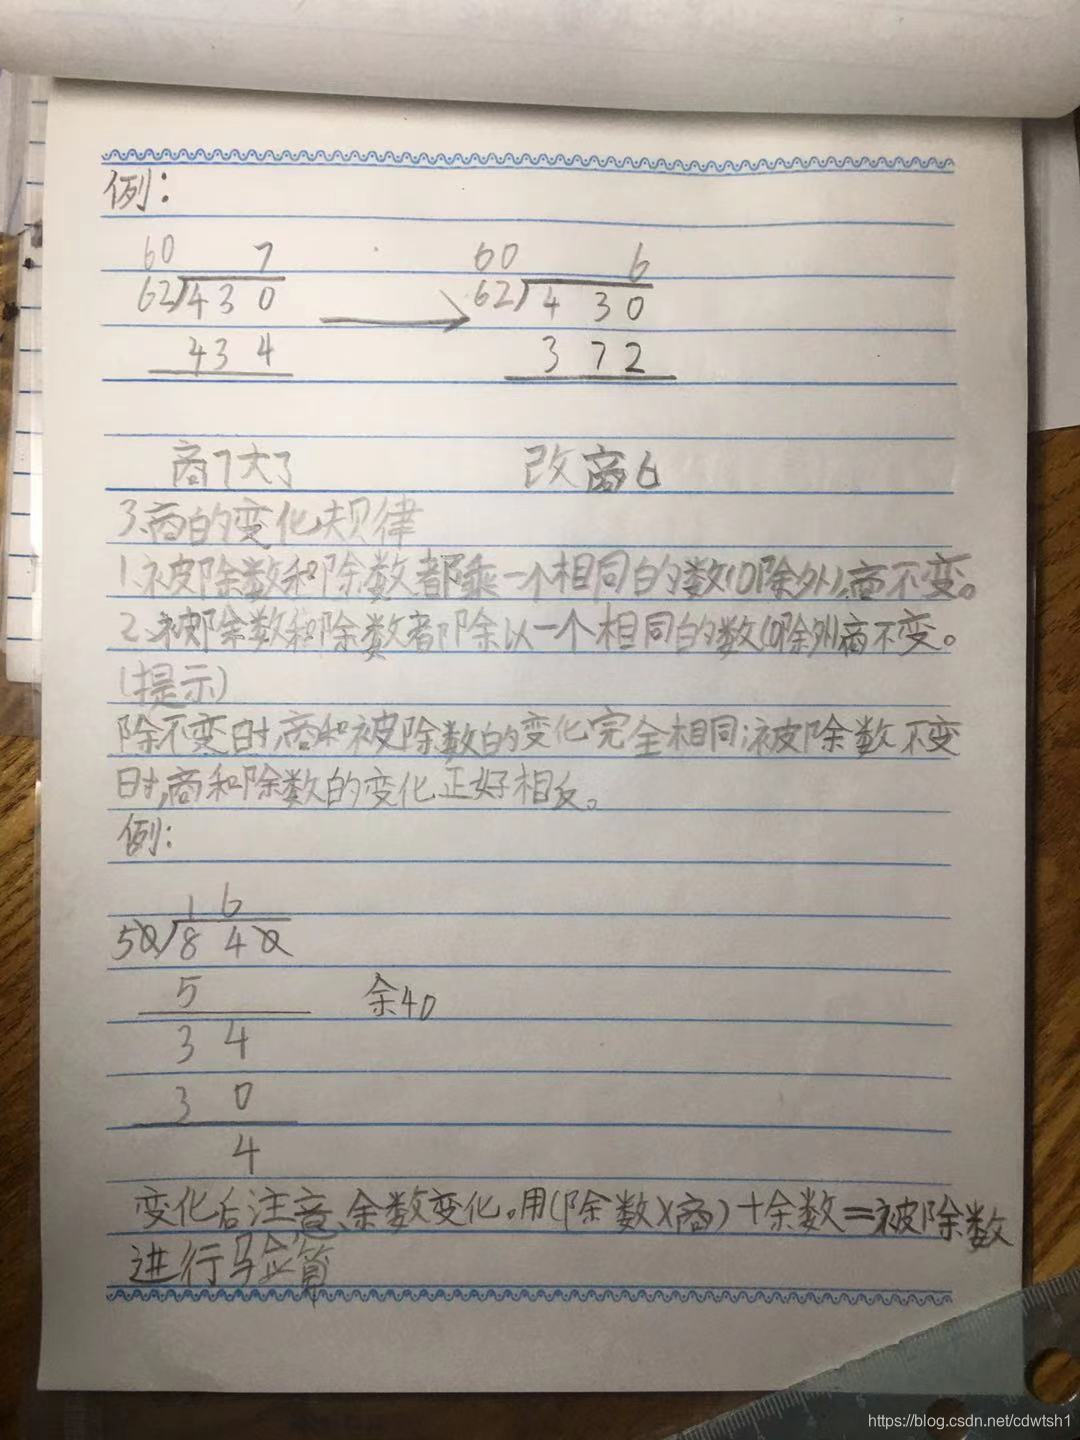 例：
60 7 60 6
62)430 62)430
434 372
商7大了 改商6
3.商的变化规律
1.被除数和除数都乘一个相同的数(0除外),商不变。
2.被除数和除数都除以一个相同的数(0除外)商不变。
(提示)
除不变时,商和被除数的变化完全相同;被除数不变
时,商和除数的变化正好相反。
例:
16
50)840
5 余40
34
30
4
变化后注意、余数变化。用(除数×商)+余数=被除数
进行验算
https://blog.csdn.net/cdwtsh1